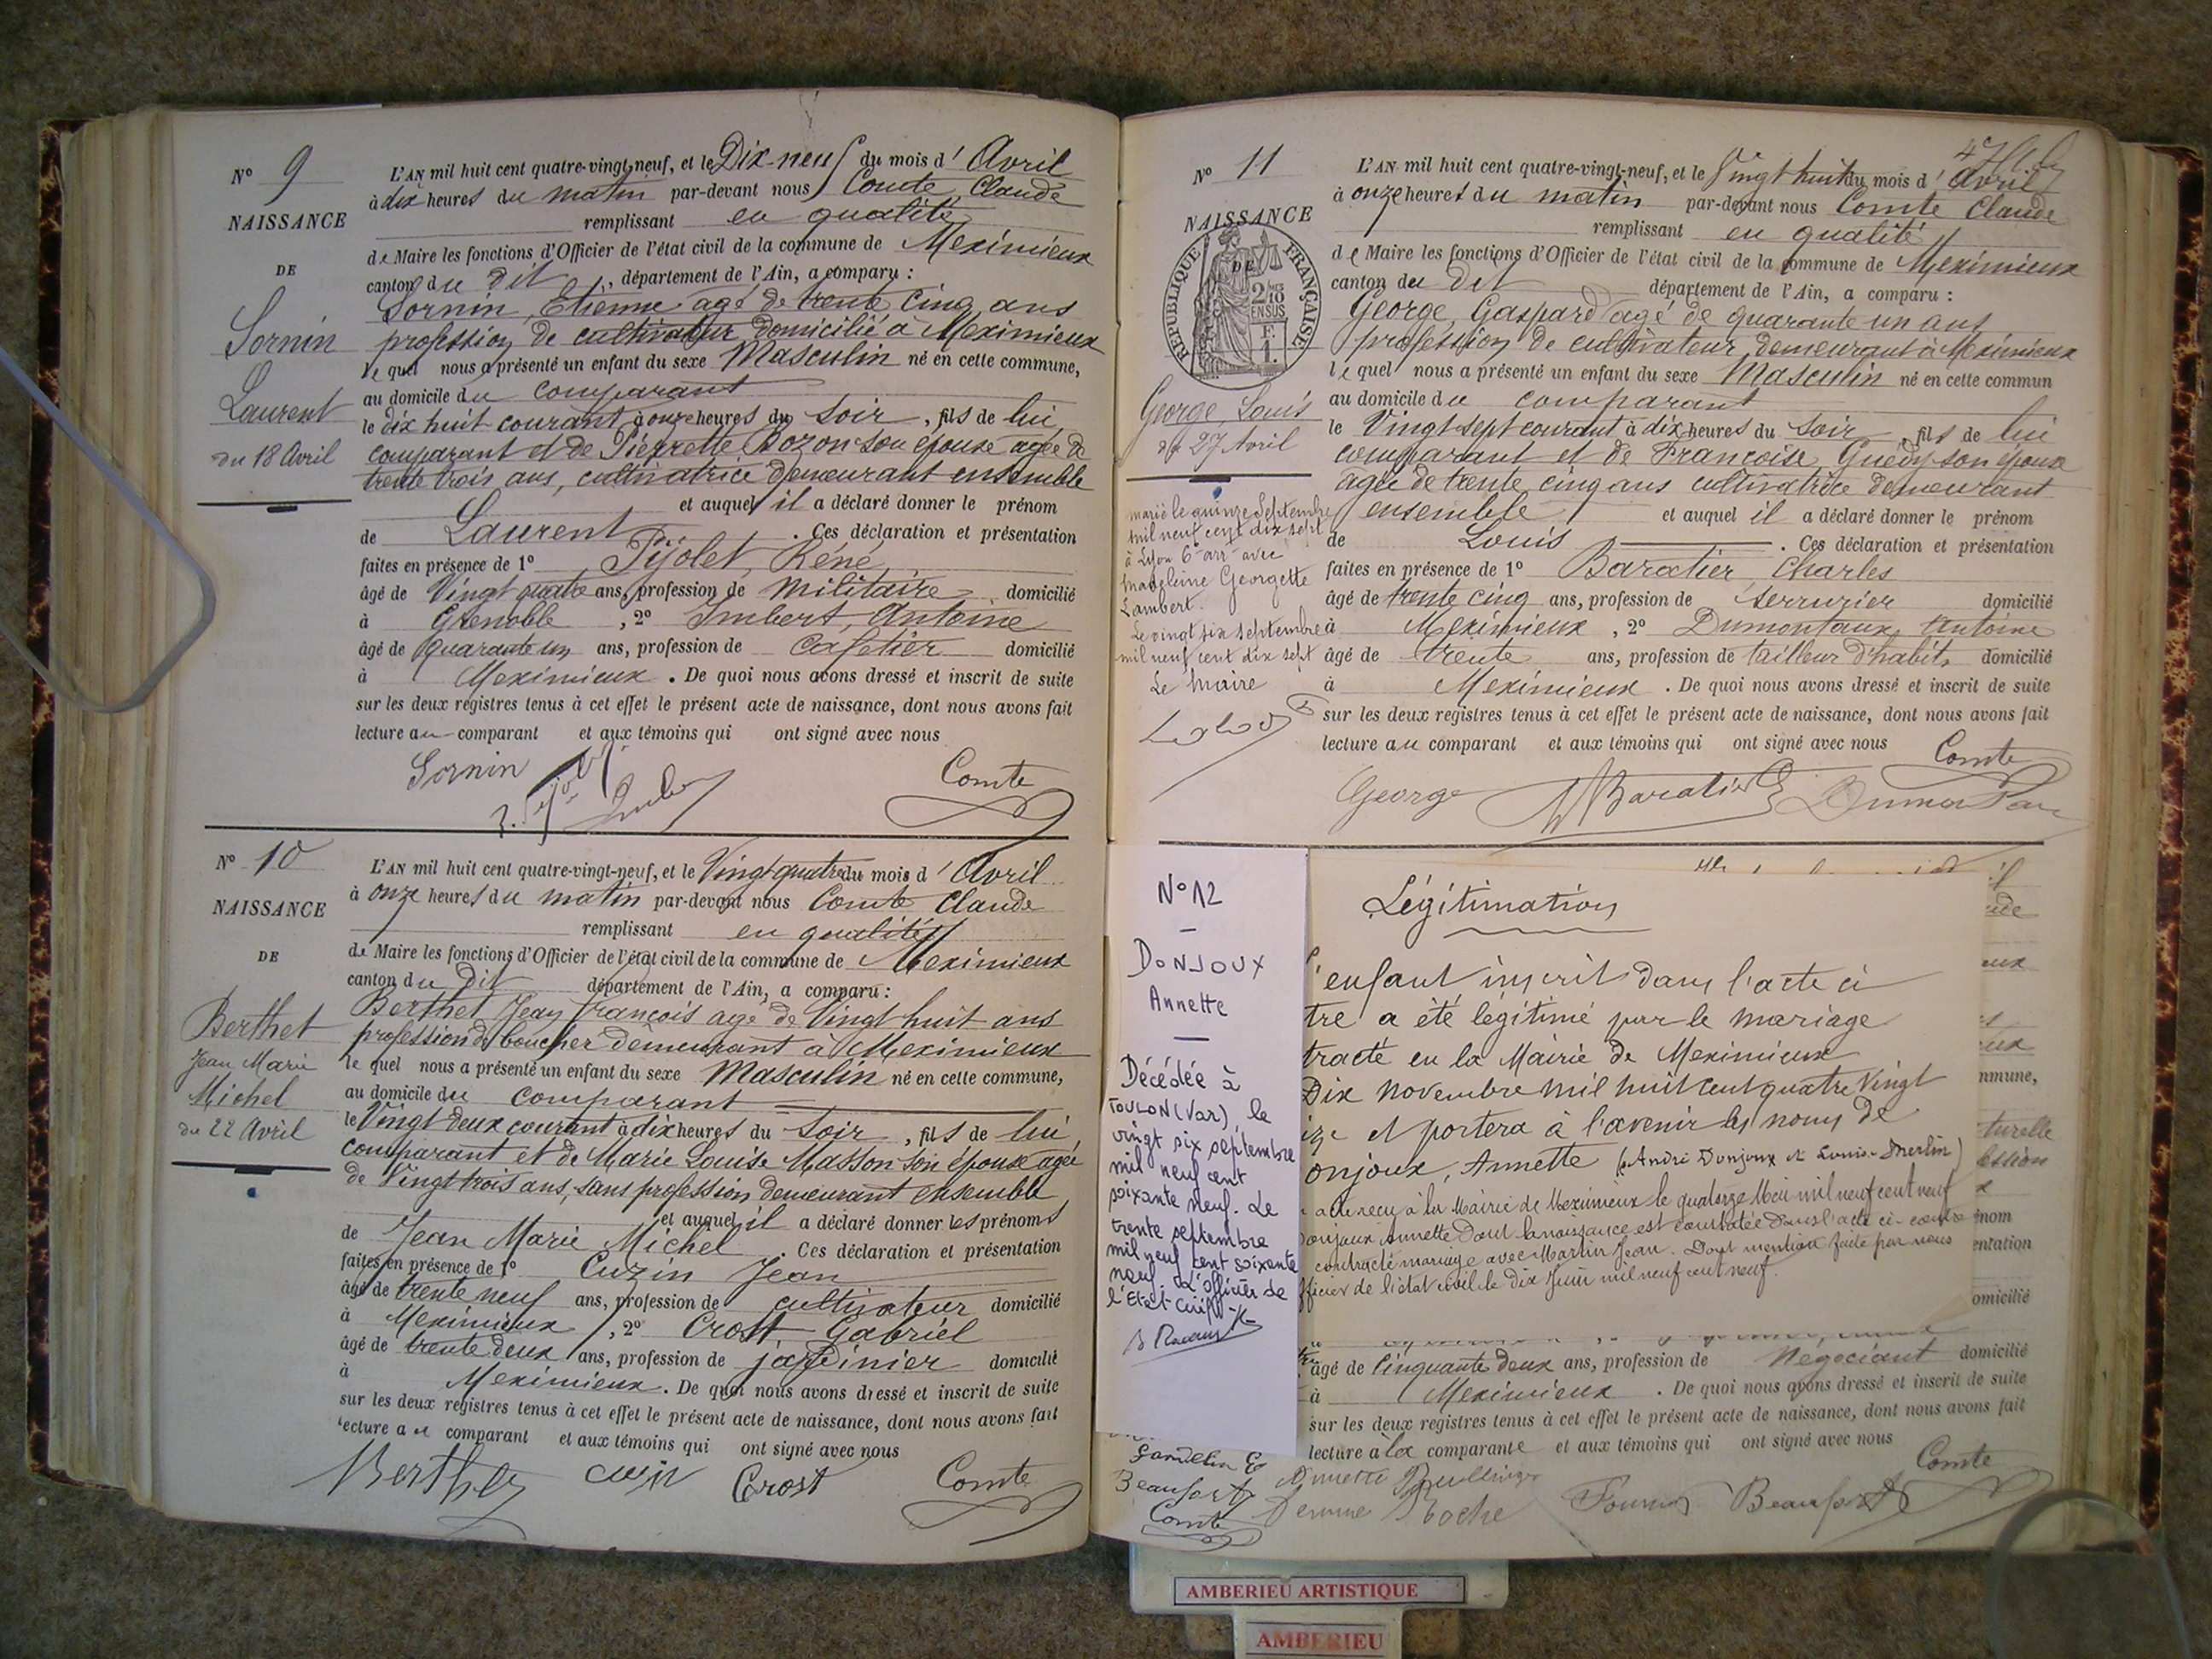 N° 9
NAISSANCE
DE
Sornin
Laurent
du 18 Avril
L'AN mil huit cent quatre-vingt-neuf, et le Dix-neuf du mois d' Avril
à dix heures du matin par-devant nous Comte Claude
remplissant en qualité
de Maire les fonctions d'Officier de l'état civil de la commune de Meximieux
canton du dit, département de l'Ain, a comparu :
Sornin, Etienne agé de trente cinq ans
profession de cultivateur domicilié à Meximieux
le quel nous a présenté un enfant du sexe Masculin né en cette commune,
au domicile du comparant
le dix huit courant à onze heures du soir, fils de lui
comparant et de Pierrette Bozon son épouse agée de
trente trois ans, cultivatrice demeurant ensemble
et auquel il a déclaré donner le prénom
de Laurent. Ces déclaration et présentation
faites en présence de 1° Pijolet, Réné
âgé de Vingt quatre ans, profession de militaire domicilié
à Grenoble, 2° Imbert, Antoine
âgé de quarante un ans, profession de cafetier domicilié
à Meximieux. De quoi nous avons dressé et inscrit de suite
sur les deux registres tenus à cet effet le présent acte de naissance, dont nous avons fait
lecture au comparant et aux témoins qui ont signé avec nous
Sornin Comte
N° 10
NAISSANCE
DE
Berthet
Jean Marie
Michel
du 22 Avril
L'AN mil huit cent quatre-vingt-neuf, et le Vingt quatre du mois d' Avril
à onze heures du matin par-devant nous Comte Claude
remplissant en qualité
de Maire les fonctions d'Officier de l'état civil de la commune de Meximieux
canton du Dit département de l'Ain, a comparu :
Berthet Jean François agé de Vingt huit ans
profession de boucher demeurant à Meximieux
le quel nous a présenté un enfant du sexe Masculin né en cette commune,
au domicile du comparant
le Vingt deux courant à dix heures du soir, fils de lui
comparant et de Marie Louise Masson son épouse agée
de Vingt trois ans, sans profession demeurant ensemble
et auquel il a déclaré donner les prénoms
de Jean Marie Michel. Ces déclaration et présentation
faites en présence de 1° Cuzin Jean
âgé de trente neuf ans, profession de cultivateur domicilié
à Meximieux, 2° Crost Gabriel
âgé de trente deux ans, profession de jardinier domicilié
à Meximieux. De quoi nous avons dressé et inscrit de suite
sur les deux registres tenus à cet effet le présent acte de naissance, dont nous avons fait
lecture au comparant et aux témoins qui ont signé avec nous
Berthet Cuzin Crost Comte
N° 11
NAISSANCE
DE
REPUBLIQUE FRANÇAISE
George, Louis
du 27 Avril
marié le quinze Septembre
mil neuf cent dix sept
à Lyon 6e arrt avec
Madeleine Georgette
Lambert.
Le vingt six septembre
mil neuf cent dix sept
Le Maire
L'AN mil huit cent quatre-vingt-neuf, et le Vingt huit du mois d' Avril
à onze heures du matin par-devant nous Comte Claude
remplissant en qualité
de Maire les fonctions d'Officier de l'état civil de la commune de Meximieux
canton du Dit département de l'Ain, a comparu :
George, Gaspard agé de quarante un ans
profession de cultivateur demeurant à Meximieux
le quel nous a présenté un enfant du sexe Masculin né en cette commun
au domicile du comparant
le Vingt-sept courant à dix heures du soir, fils de lui
comparant et de Françoise Guédy son épouse
agée de trente cinq ans cultivatrice demeurant
ensemble et auquel il a déclaré donner le prénom
de Louis. Ces déclaration et présentation
faites en présence de 1° Baratier, Charles
âgé de trente cinq ans, profession de serrurier domicilié
à Meximieux, 2° Dumontaux, Antoine
âgé de trente ans, profession de tailleur d'habits domicilié
à Meximieux. De quoi nous avons dressé et inscrit de suite
sur les deux registres tenus à cet effet le présent acte de naissance, dont nous avons fait
lecture au comparant et aux témoins qui ont signé avec nous
Comte
George Baratier
N° 12
DONJOUX
Annette
Décédée à
TOULON (Var), le
vingt six septembre
mil neuf cent
soixante neuf. Le
trente septembre
mil neuf cent soixante
neuf. L'officier de
l'Etat-civil
Légitimation
l'enfant inscrit dans l'acte ci
tre a été légitimé par le mariage
tracté en la Mairie de Meximieux
Dix novembre mil huit cent quatre Vingt
ize et portera à l'avenir les noms de
onjoux, Annette (André Donjoux et Louise Merlin)
acte reçu à la Mairie de Meximieux le quatorze Mai mil neuf cent neuf
Donjoux Annette dont la naissance est constatée dans l'acte ci-contre
contracté mariage avec Martin Jean. Dont mention faite par nous
fficier de l'état civil le Dix Juin mil neuf cent neuf.
turelle
nmune,
ession
entation
omicilié
âgé de Cinquante deux ans, profession de Négociant domicilié
à Meximieux. De quoi nous avons dressé et inscrit de suite
sur les deux registres tenus à cet effet le présent acte de naissance, dont nous avons fait
lecture à la comparante et aux témoins qui ont signé avec nous
Comte
Beaufort
Comte
Annette
Femme Roche Beaufort
AMBERIEU ARTISTIQUE
AMBERIEU